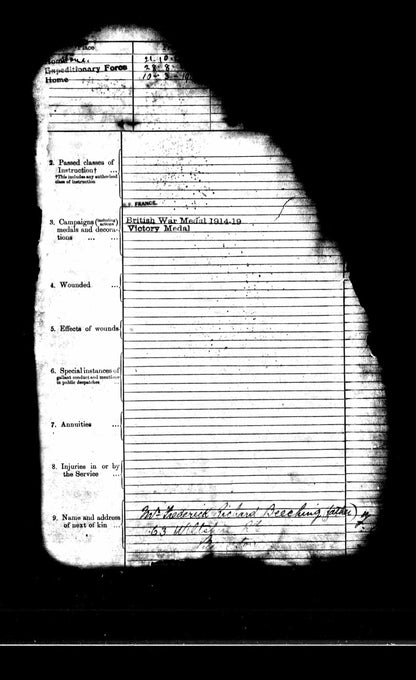 Place
Home
Expeditionary Force
Home
2. Passed classes of
Instruction† ...
†This includes any authorised
class of instruction
FRANCE.
3. Campaigns (including actions)
medals and decora-
tions ... ...
British War Medal 1914-19
Victory Medal
4. Wounded ...
5. Effects of wounds
6. Special instances of
gallant conduct and mentions
in public despatches
7. Annuities ...
8. Injuries in or by
the Service ...
9. Name and address
of next of kin ...
Mr Frederick Richard Beeching (father)
63 Wiltshire Rd